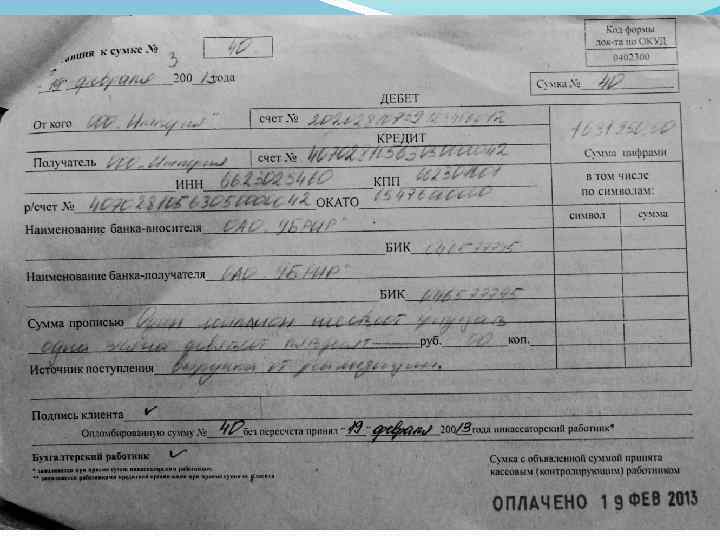 к сумке № 3 40.
Код формы
док-та по ОКУД
0402300
19 февраля 2013 года
Сумка № 40
ДЕБЕТ
От кого ООО „Империя" счет №
КРЕДИТ
Получатель ООО „Империя" счет № 40702810563050000042
Сумма цифрами
ИНН 6623025460 КПП 662301001
в том числе
по символам:
р/счет № 40702810563050000042 ОКАТО
символ сумма
Наименование банка-вносителя ОАО „УБРИР"
БИК 046577795
Наименование банка-получателя ОАО „УБРИР"
БИК 046577795
Сумма прописью Один миллион шестьсот тридцать
одна тысяча девятьсот пятьдесят руб. 00 коп.
Источник поступления выручка от реализации.
Подпись клиента
Опломбированную сумку № 40 без пересчета принял "19" февраля 2013 года инкассаторский работник*
Бухгалтерский работник
Сумка с объявленной суммой принята
кассовым (контролирующим) работником
ОПЛАЧЕНО 19 ФЕВ 2013